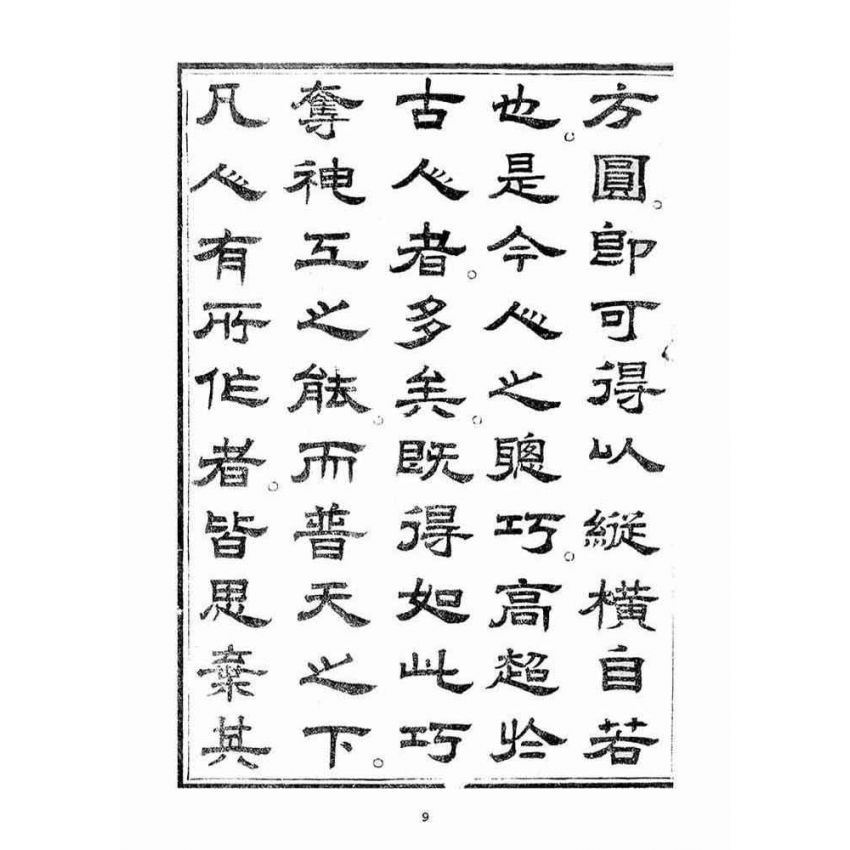 方圓。即可得以縱橫自若
也。是今人之聰巧。高超於
古人者。多矣。既得如此巧
奪神工之能。而普天之下。
凡人有所作者。皆思棄其
9